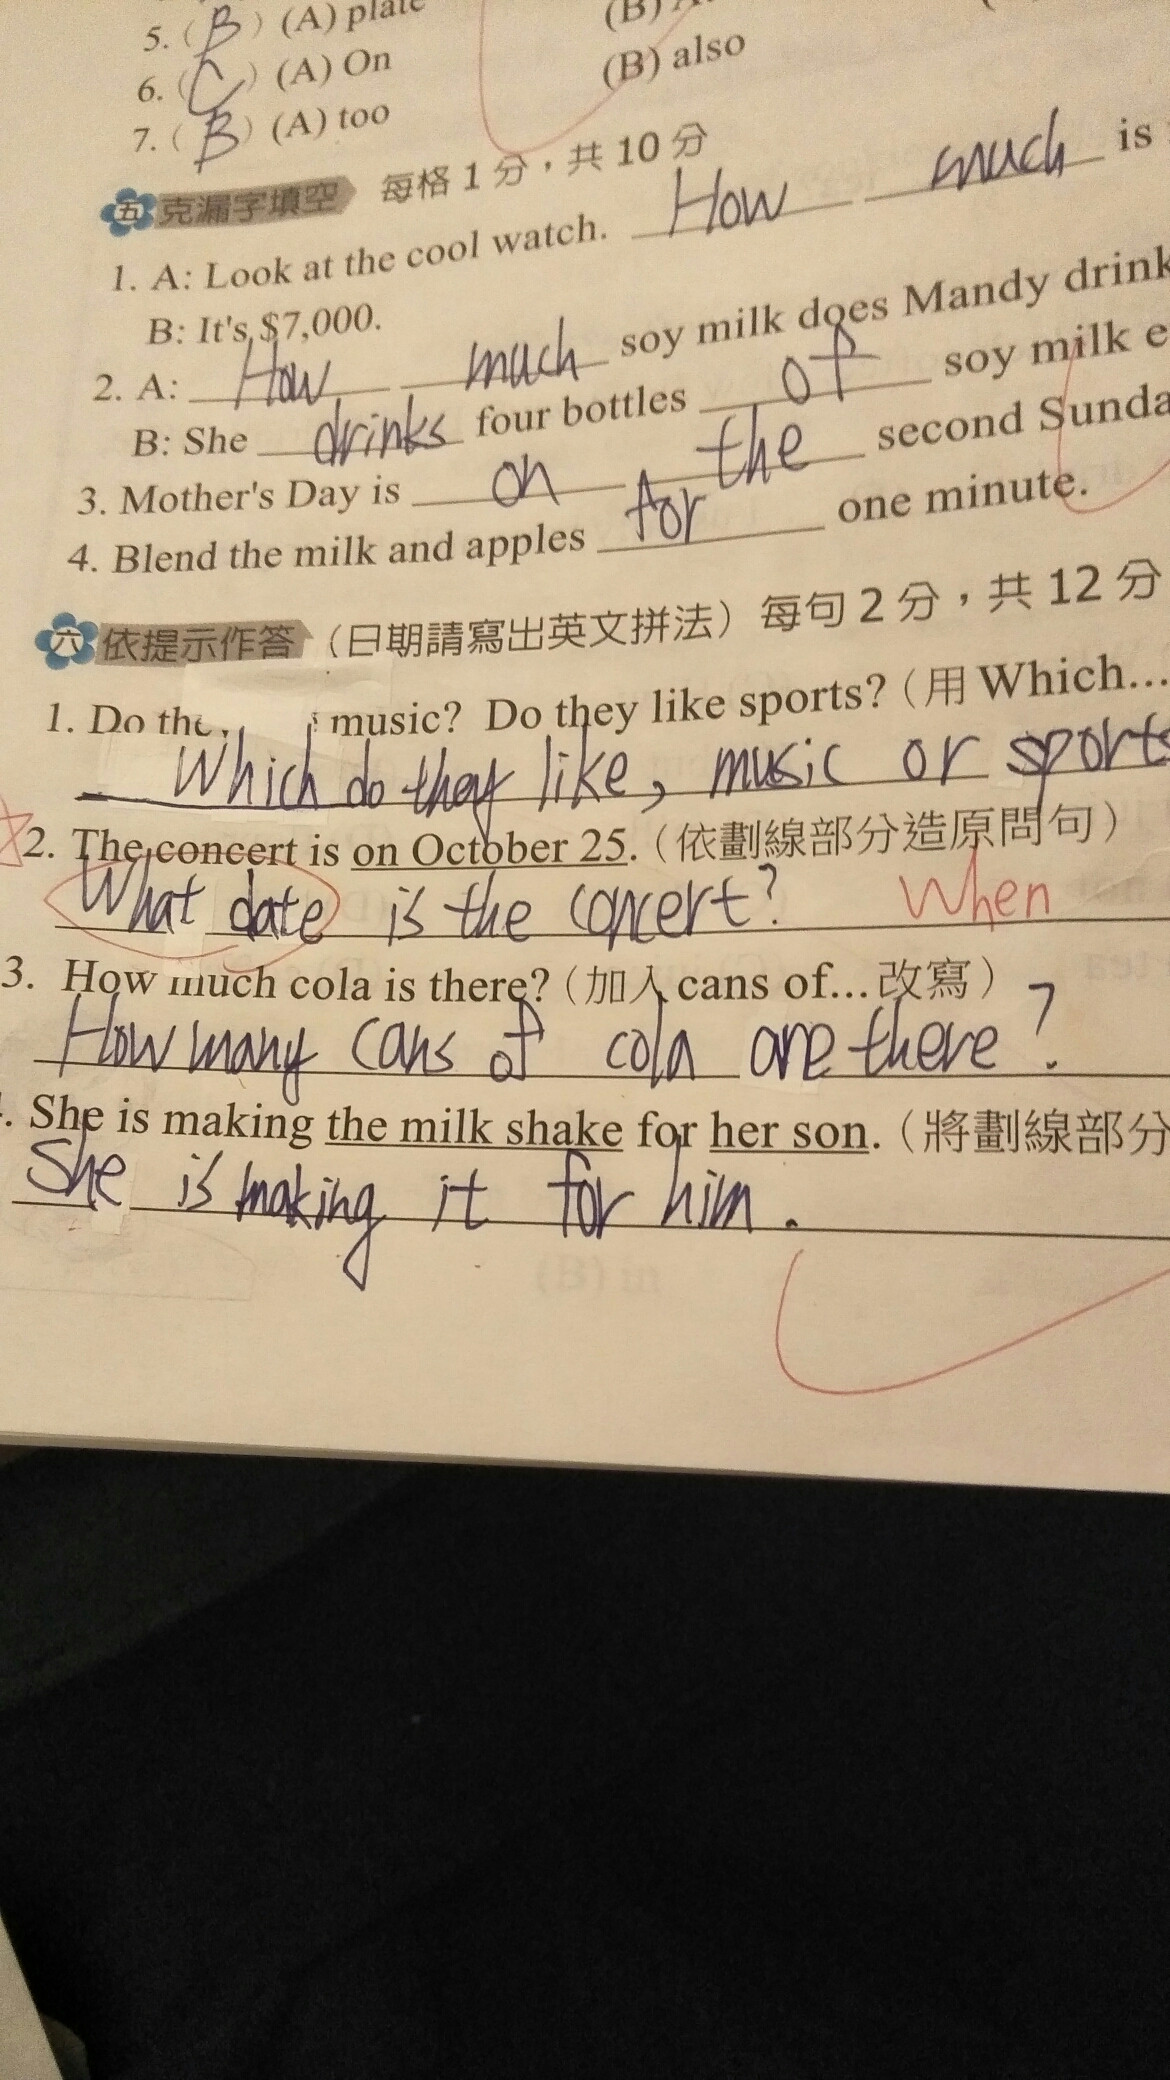 5. (B) (A) plate
6. (C) (A) On (B) also
7. (B) (A) too
五 克漏字填空 每格1分，共10分
1. A: Look at the cool watch. How much is
B: It's $7,000.
2. A: How much soy milk does Mandy drink
B: She drinks four bottles of soy milk e
3. Mother's Day is on the second Sunda
4. Blend the milk and apples for one minute.
六 依提示作答（日期請寫出英文拼法）每句2分，共12分
1. Do the music? Do they like sports?（用 Which...
Which do they like, music or sports
2. The concert is on October 25.（依劃線部分造原問句）
What date is the concert? When
3. How much cola is there?（加入 cans of...改寫）
How many cans of cola are there?
. She is making the milk shake for her son.（將劃線部分
She is making it for him.
(B) in